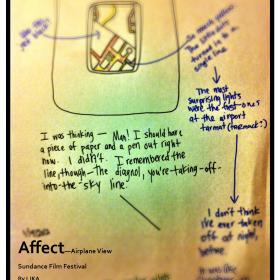 So much yellow.
The white dots
turned to a
single line
The most
surprising lights
were the first ones
at the airport
tarmat (tarmack?)
I was thinking — Man! I should have
a piece of paper and a pen out right
now. I didn't. I remembered the
line though— The diagnol, you're-taking-off-
into-the-sky line.
I don't think
I've ever taken
off at night,
before.
It was like
Affect—Airplane View
Sundance Film Festival
By LIKA